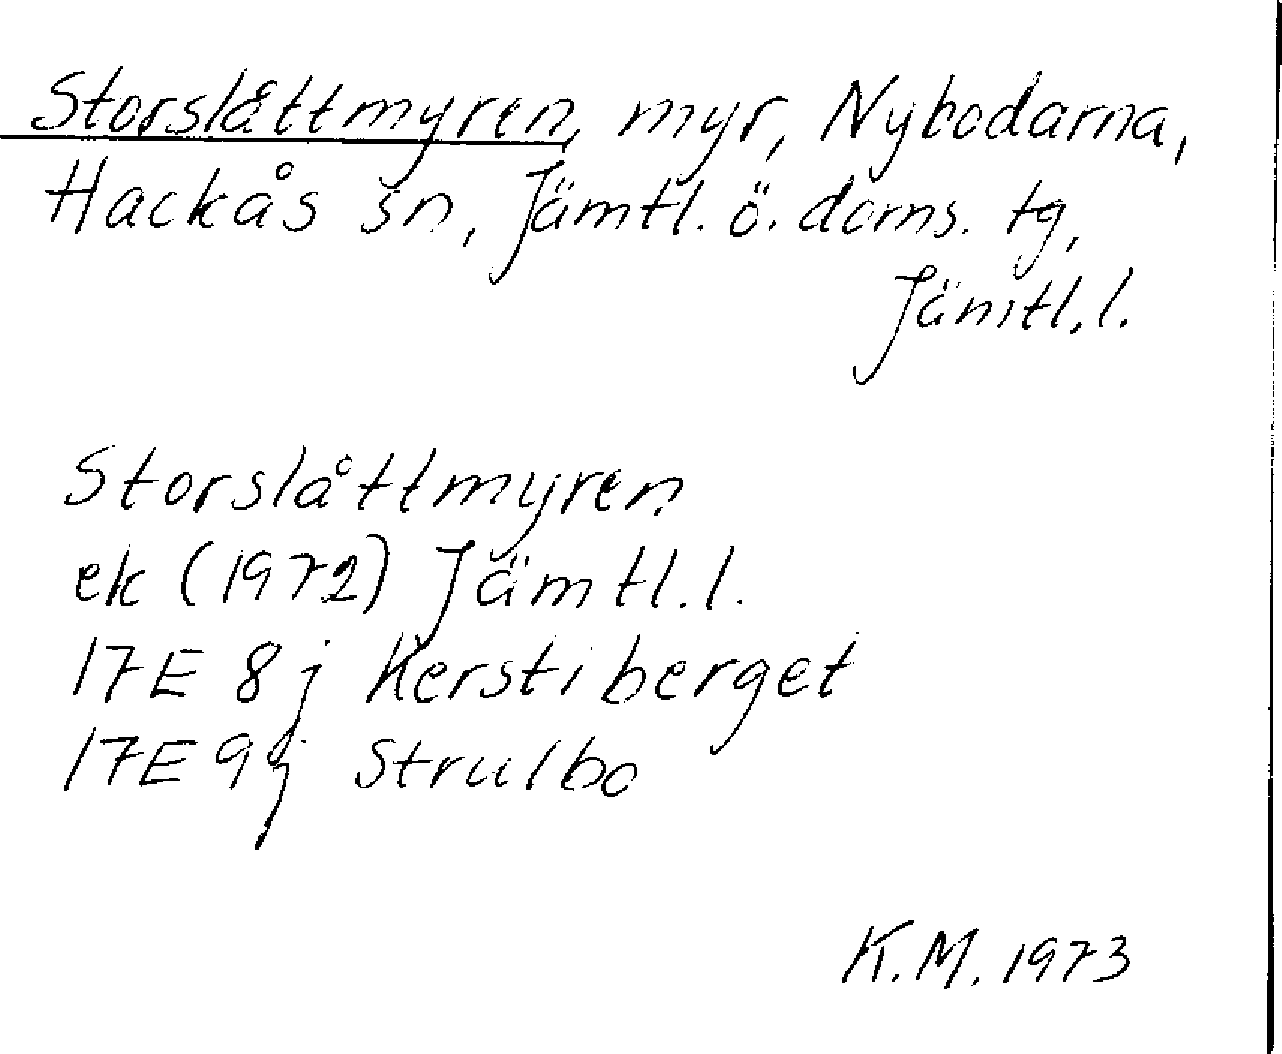 Storslåttmyren, myr, Nybodarna,
Hackås sn, Jämtl. ö. doms. tg,
Jämtl. l.
Storslåttmyren
ek (1972) Jämtl. l.
17E 8j Kerstiberget
17E 9j Strulbo
K.M. 1973